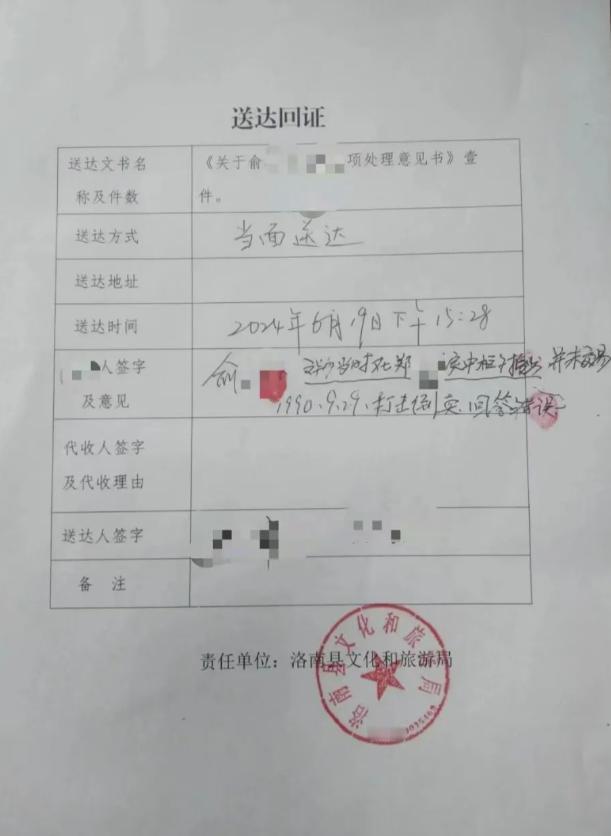 送达回证
送达文书名
称及件数
《关于俞
项处理意见书》壹
件。
送达方式
当面送达
送达地址
送达时间
2024年6月19日下午15:28
人签字
及意见
俞
当时
郑
并未
1990.9.29.
回答错误
代收人签字
及代收理由
送达人签字
备 注
责任单位：洛南县文化和旅游局
洛南县文化和旅游局